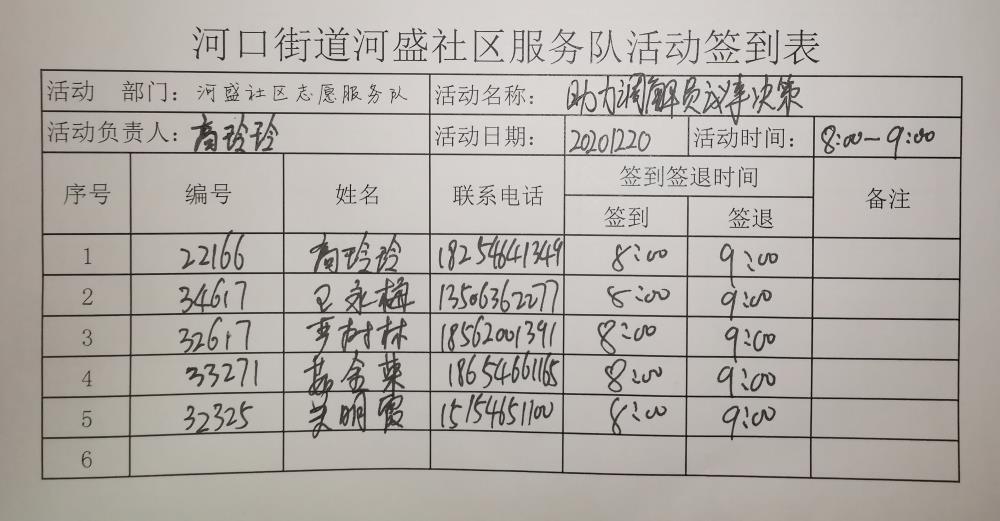 河口街道河盛社区服务队活动签到表
活动 部门：河盛社区志愿服务队 活动名称：助力调解员议事决策
活动负责人：商玲玲 活动日期：20201220 活动时间：8:00-9:00
序号 编号 姓名 联系电话 签到签退时间 备注
签到 签退
1 22166 商玲玲 18254641349 8:00 9:00
2 34617 王永梅 13506362277 8:00 9:00
3 32617 李树林 18562001391 8:00 9:00
4 33271 金荣 18654661165 8:00 9:00
5 32325 明霞 15154651100 8:00 9:00
6